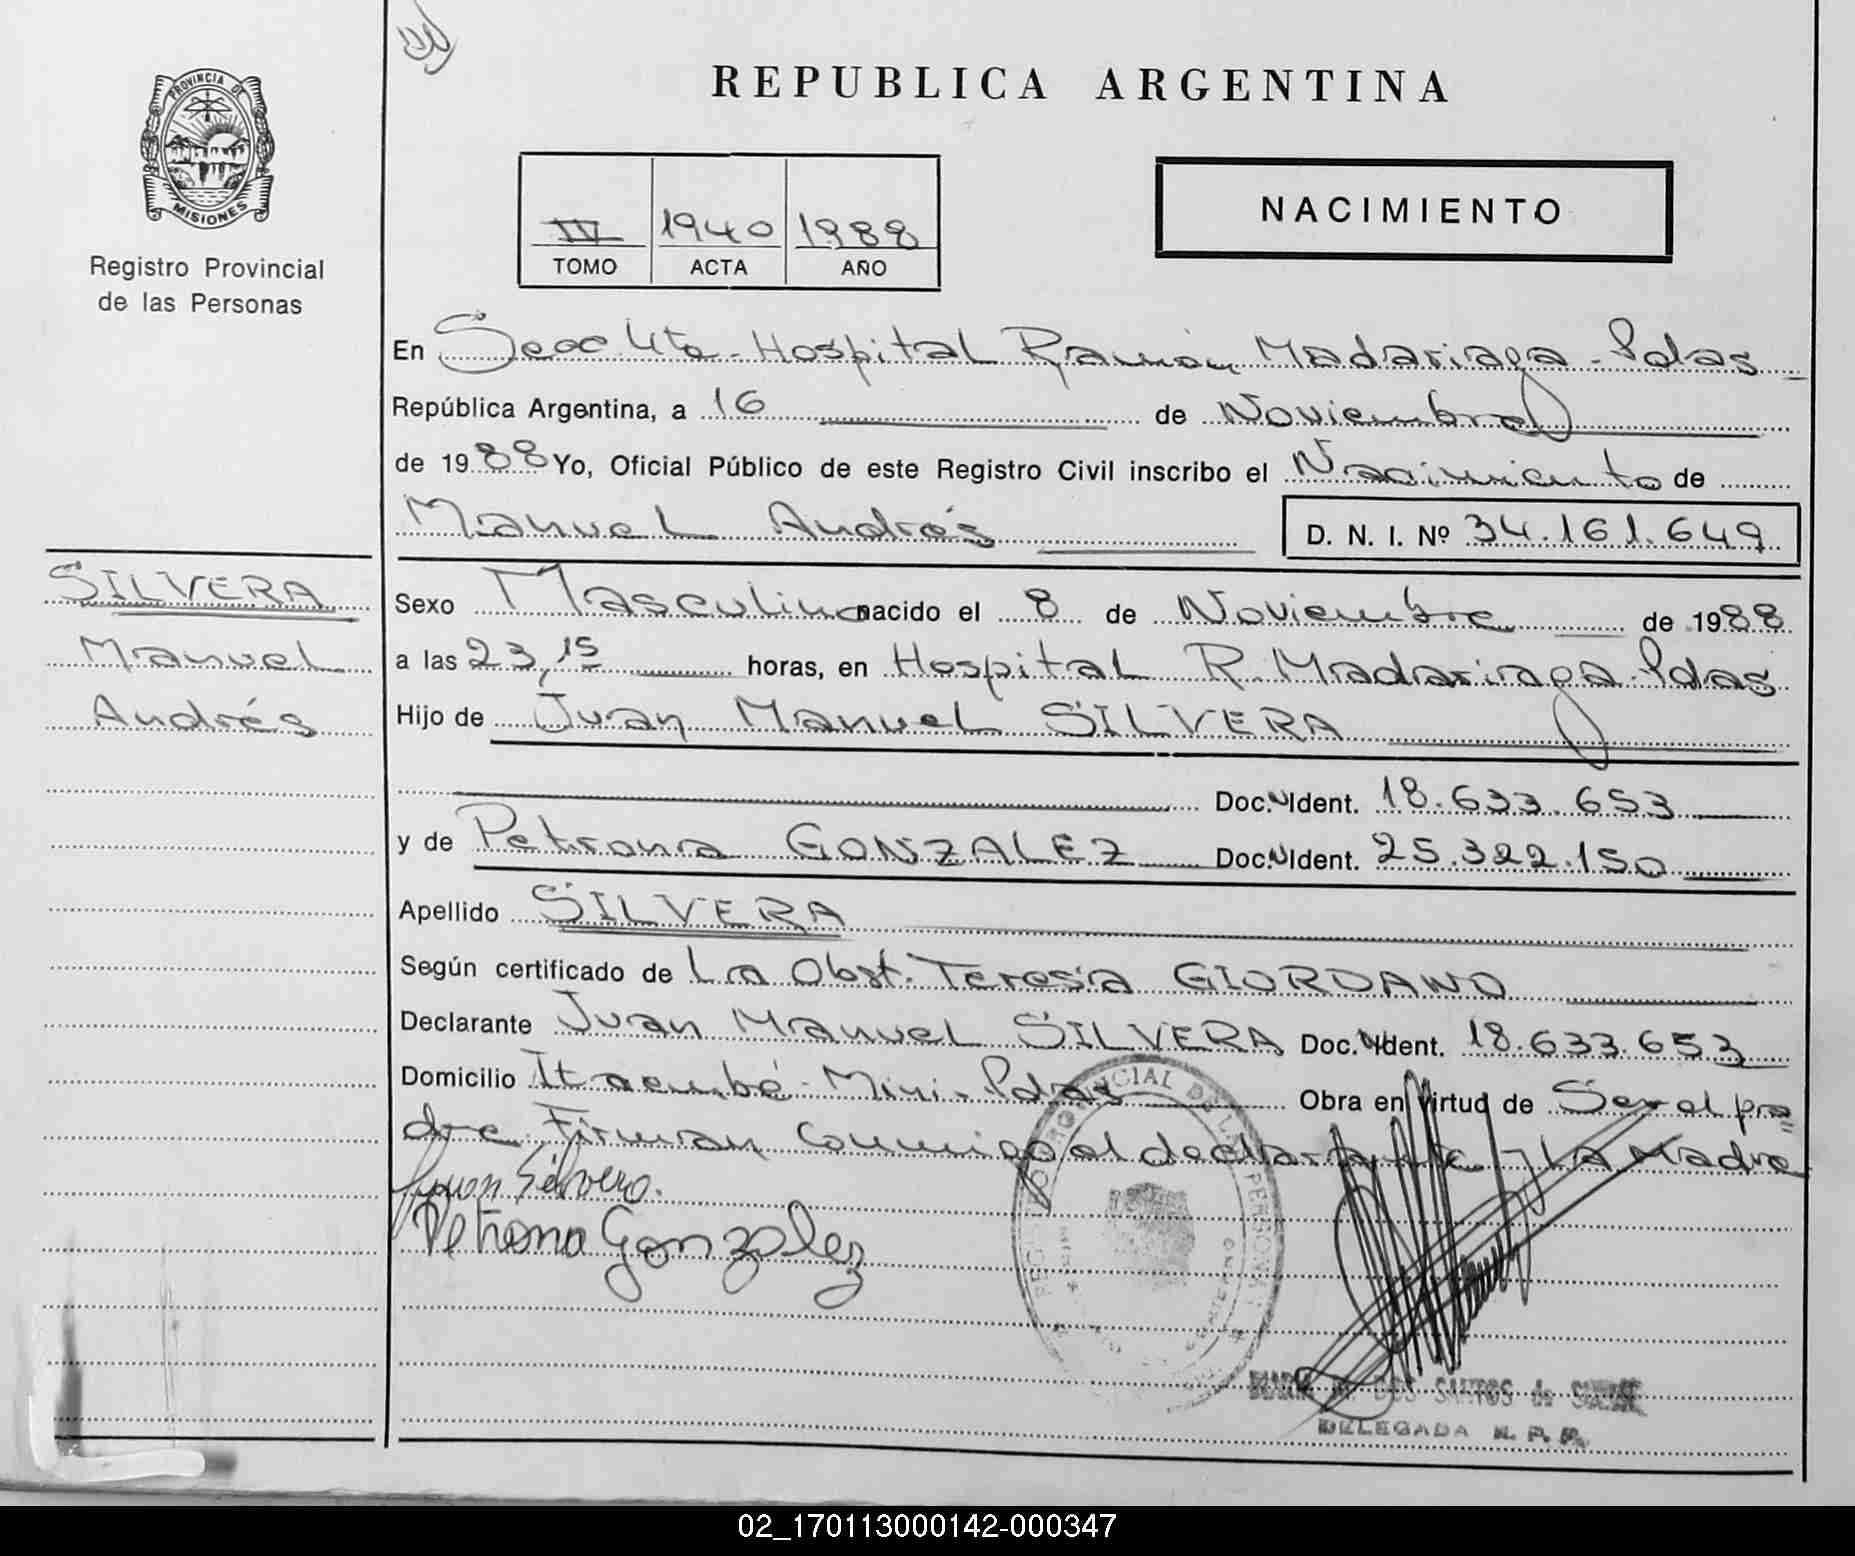 REPUBLICA ARGENTINA
PROVINCIA DE
MISIONES
Registro Provincial
de las Personas
NACIMIENTO
IV 1940 1988
TOMO ACTA AÑO
En Secc 4ta - Hospital Ramón Madariaga - Pdas
República Argentina, a 16 de Noviembre
de 1988 Yo, Oficial Público de este Registro Civil inscribo el Nacimiento de
Manuel Andrés
D. N. I. Nº 34.161.649
SILVERA
Manuel
Andrés
Sexo Masculino nacido el 8 de Noviembre de 1988
a las 23,15 horas, en Hospital R. Madariaga - Pdas
Hijo de Juan Manuel SILVERA
Doc. N Ident. 18.633.653
y de Petrona GONZALEZ Doc. N Ident. 25.322.150
Apellido SILVERA
Según certificado de La Obst. Teresa GIORDANO
Declarante Juan Manuel SILVERA Doc. N Ident. 18.633.653
Domicilio Itaembé - Mini - Pdas Obra en virtud de Ser el pa
dre Firman conmigo el declarante y la Madre
Juan Silvero.
Petrona Gonzalez
DOS SANTOS de
DELEGADA R. P. P.
02_170113000142-000347